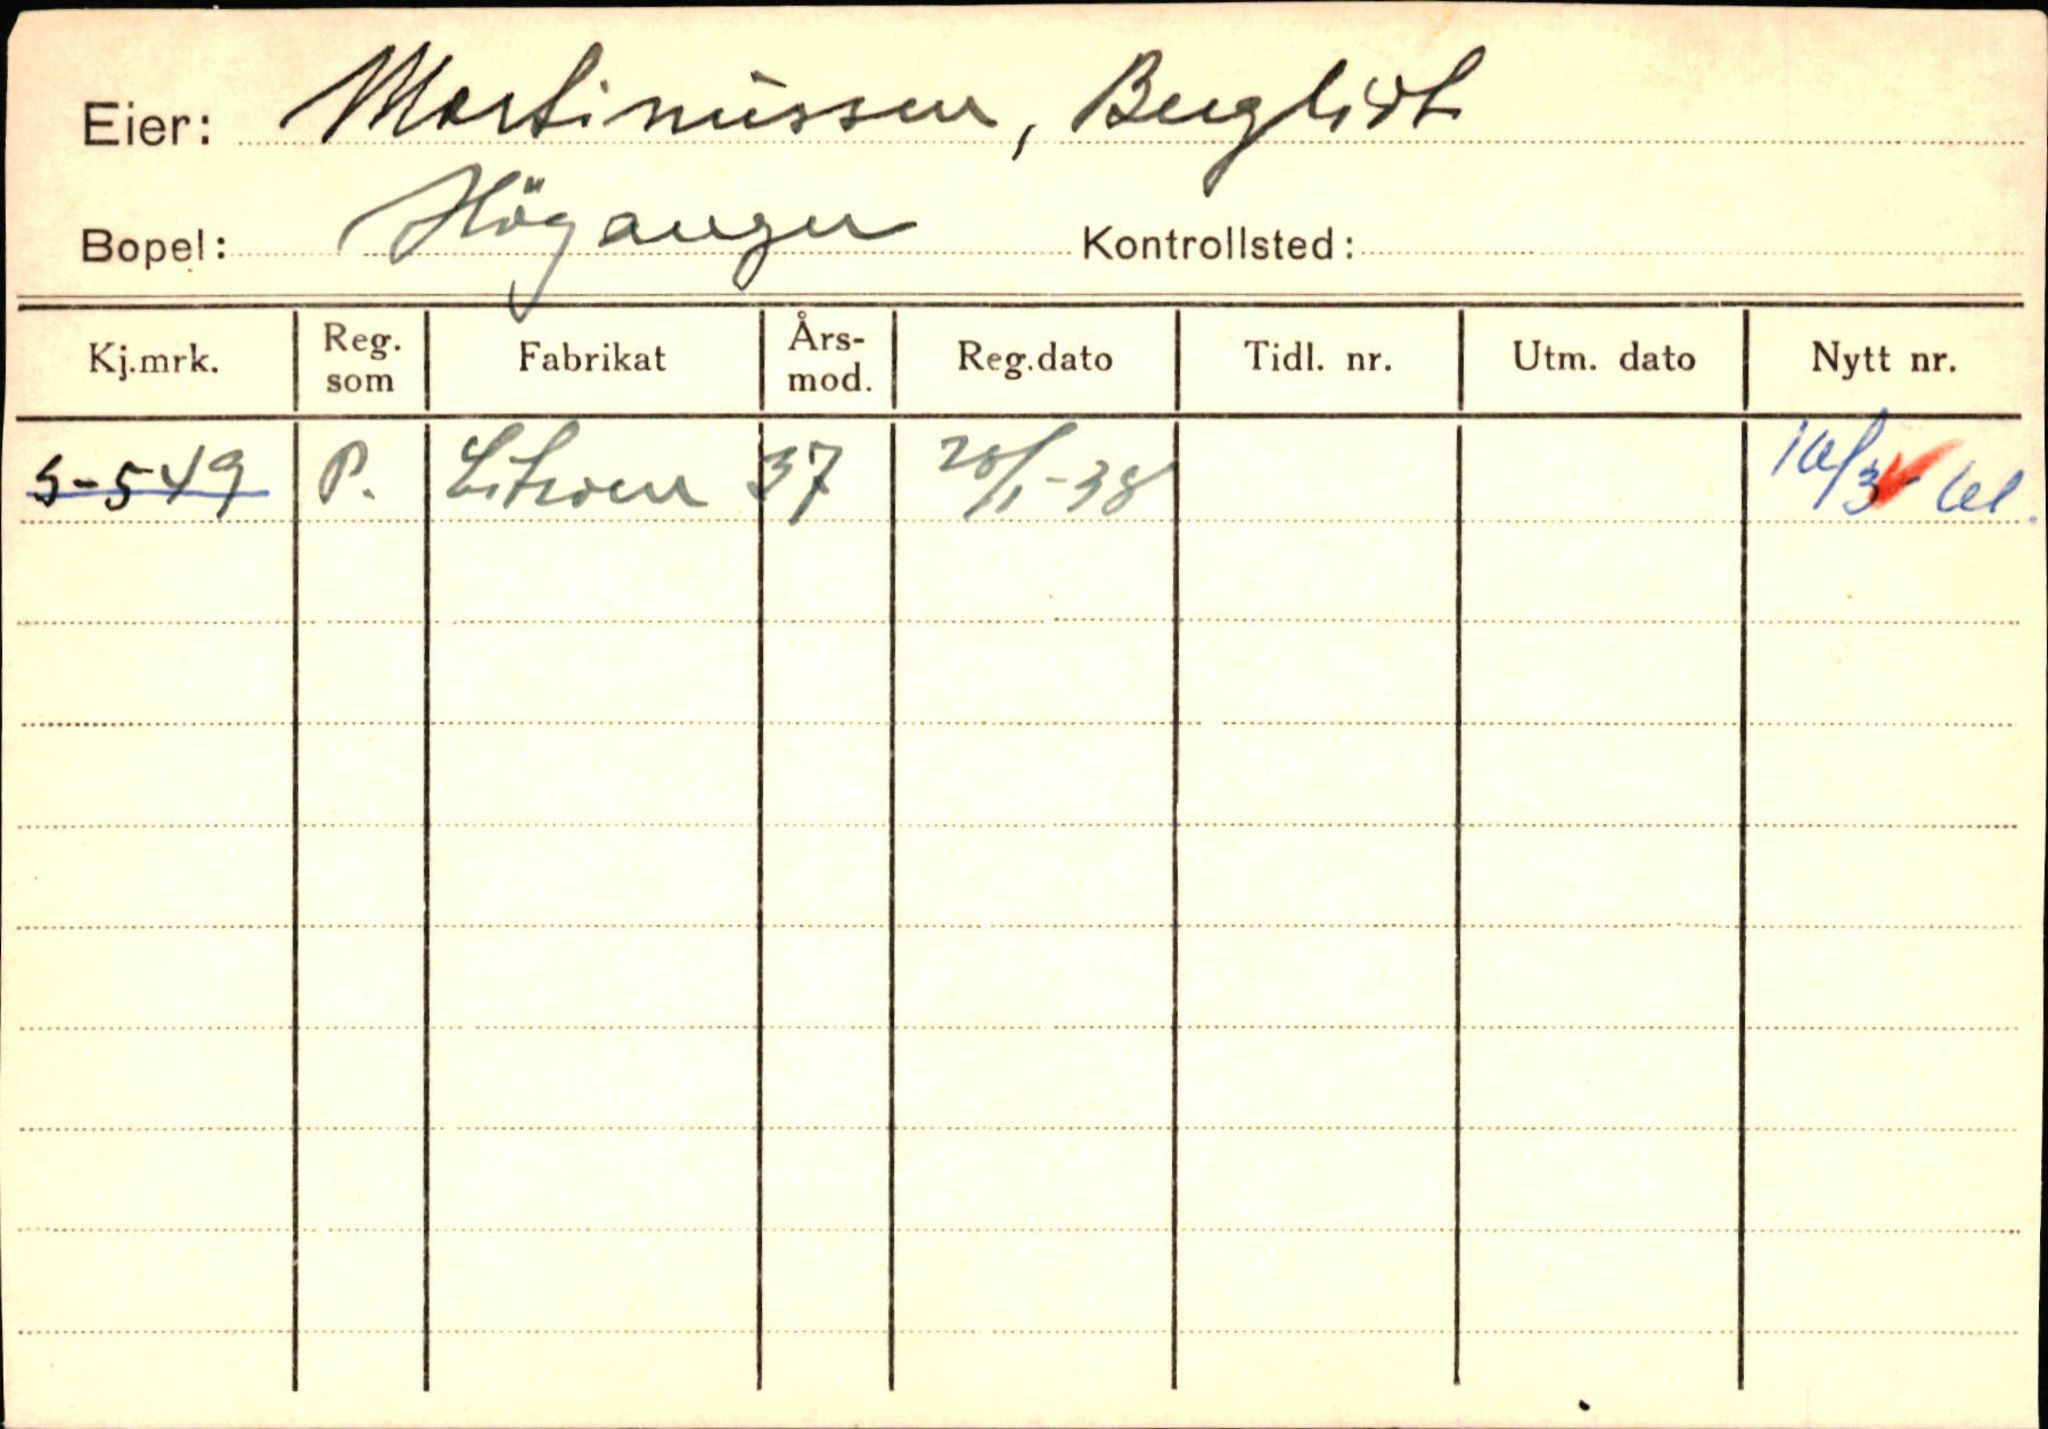 Eier: Martinussen, Bergliot
Bopel: Höyanger Kontrollsted:
Kj.mrk. Reg. som Fabrikat Års-mod. Reg.dato Tidl. nr. Utm. dato Nytt nr.
S-549 P. Citroen 37 20/1-38 10/3-61.